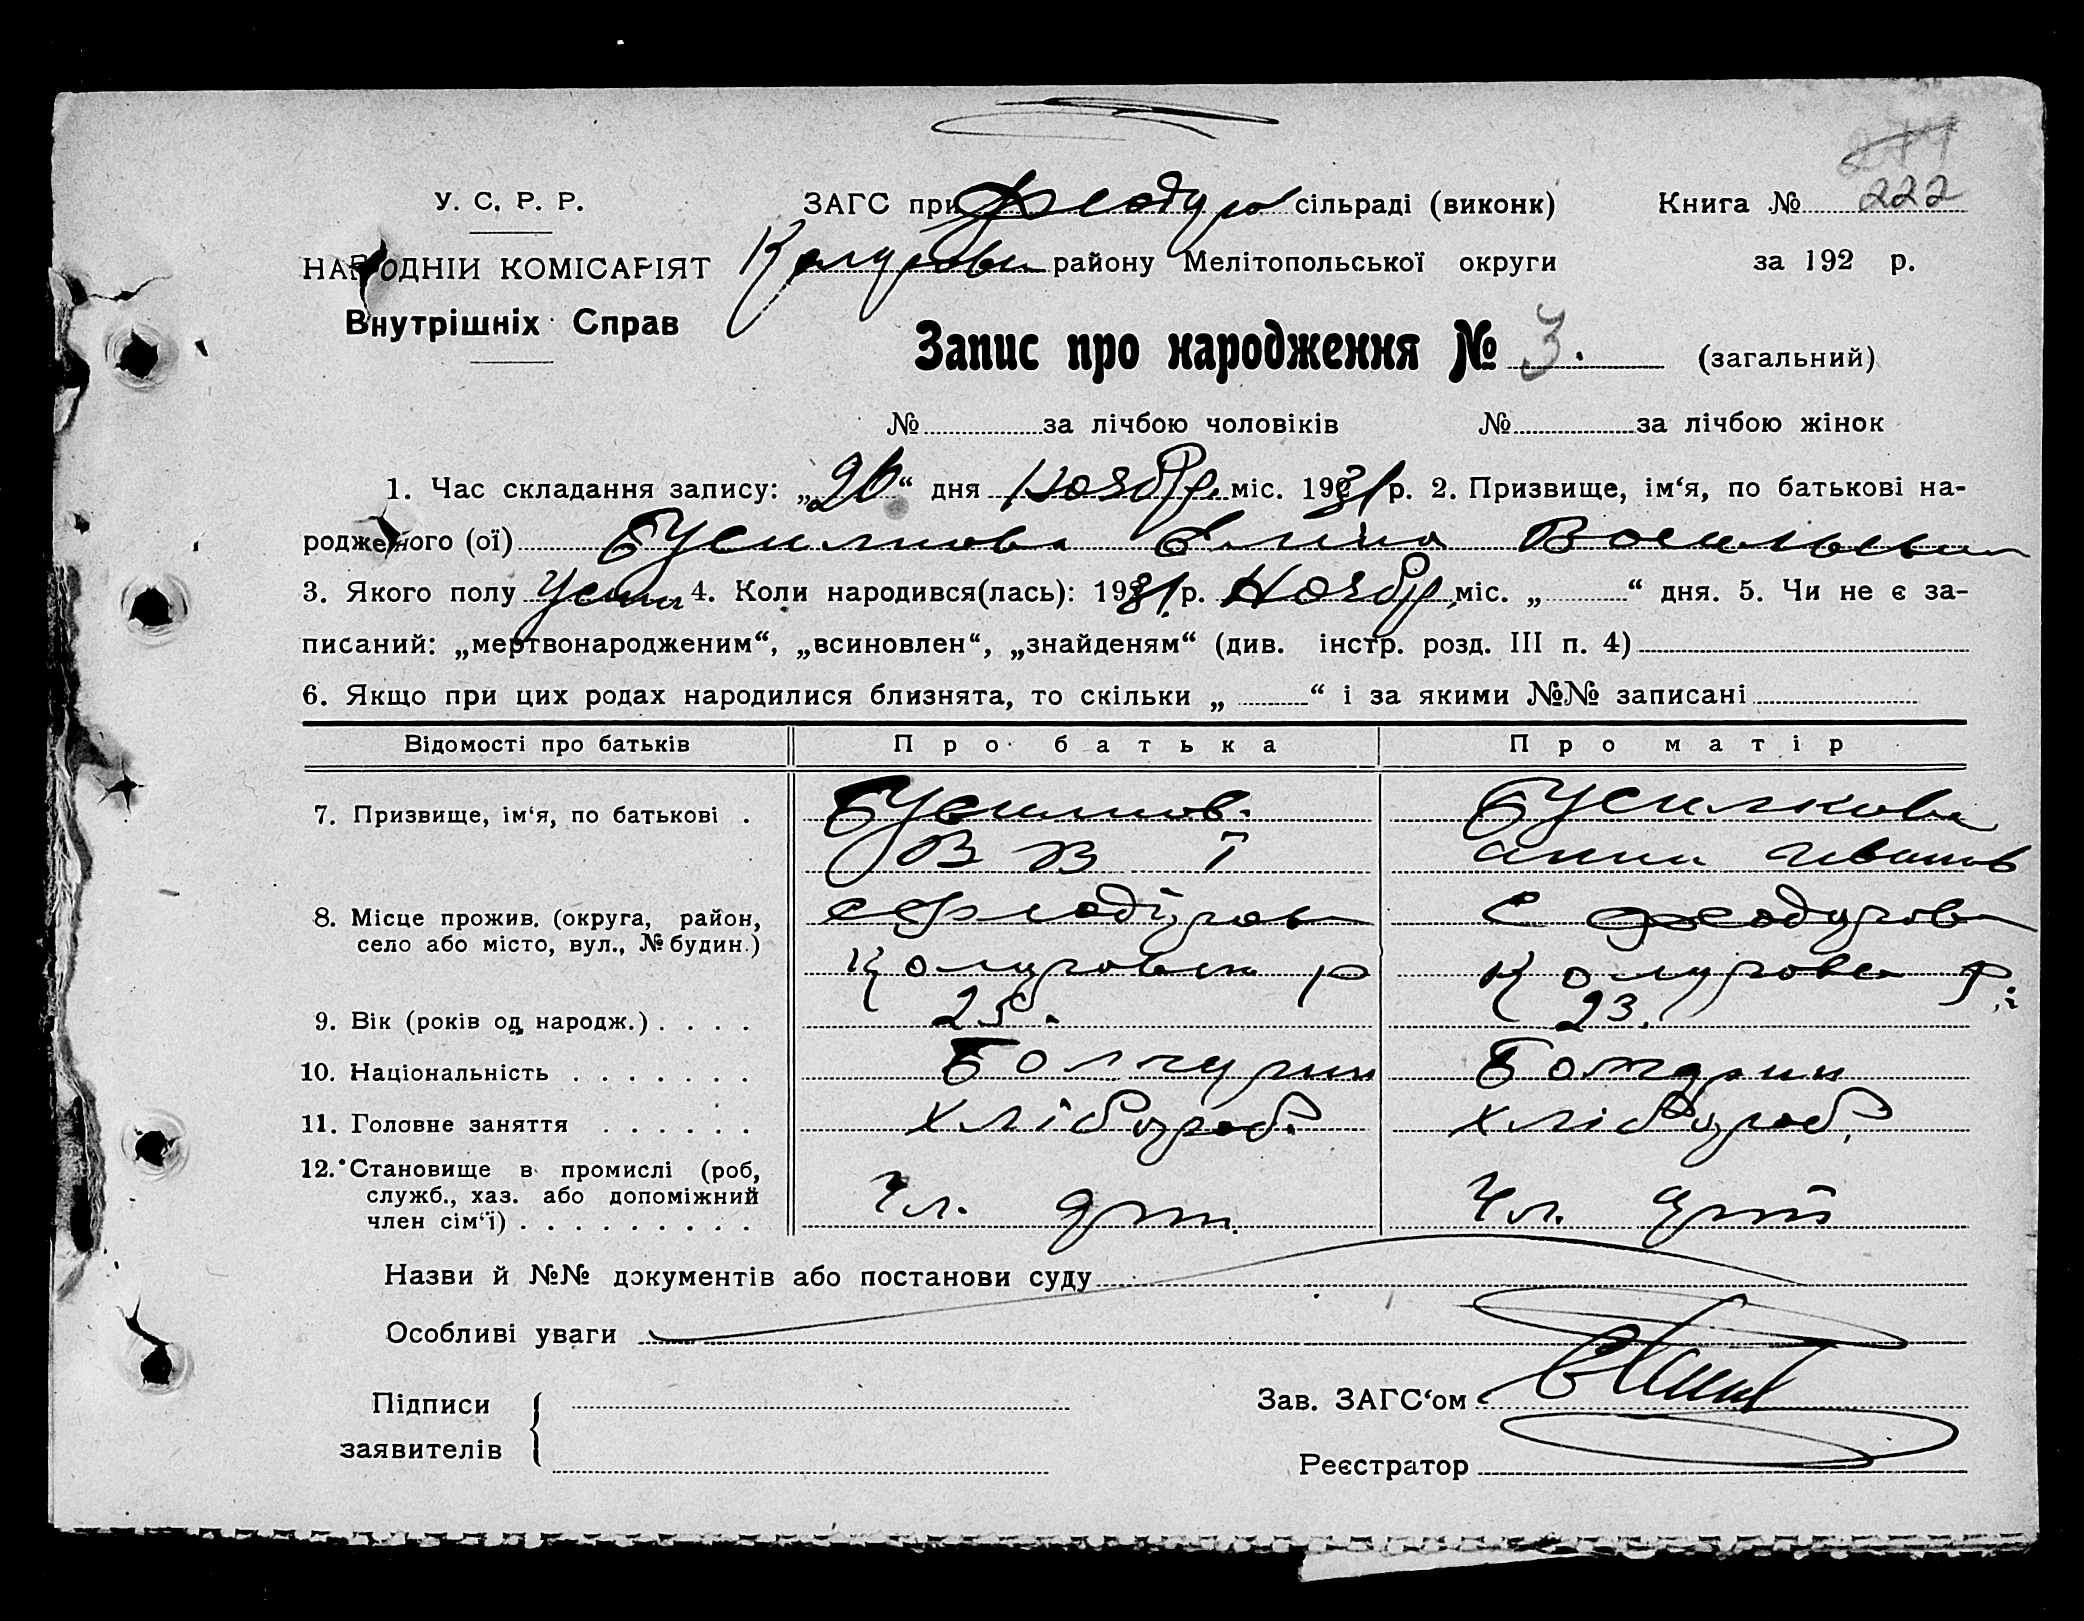 222
У. С. Р. Р.
ЗАГС при Феодуро сільраді (виконк)
Книга № 222
НАРОДНІЙ КОМІСАРІЯТ
району Мелітопольської округи
за 192 р.
Внутрішніх Справ
Запис про народження № 3. (загальний)
№ за лічбою чоловіків № за лічбою жінок
1. Час складання запису: „26“ дня Ноябр. міс. 1931 р. 2. Призвище, ім‘я, по батькові на-
родженого (ої)
3. Якого полу 4. Коли народився(лась): 1931. р. Ноябр. міс. „ “ дня. 5. Чи не є за-
писаний: „мертвонародженим“, „всиновлен“, „знайденям“ (див. інстр. розд. III п. 4)
6. Якщо при цих родах народилися близнята, то скільки „ “ і за якими №№ записані
Відомості про батьків Про батька Про матір
7. Призвище, ім‘я, по батькові . Бусилков. Бусилкова
В В І Анна Иванов
8. Місце прожив. (округа, район, с Феодуров
село або місто, вул., № будин.)
9. Вік (років од народж.) . . . . 25. 23.
10. Національність . . . . . . . Болгурин Болгарин
11. Головне заняття . . . . . . хлібороб. хлібороб.
12. Становище в промислі (роб,
служб., хаз. або допоміжний Чл. арт. Чл. арт
член сім‘ї) . . . . . . . . .
Назви й №№ документів або постанови суду
Особливі уваги
Підписи
заявителів
Зав. ЗАГС‘ом
Реєстратор